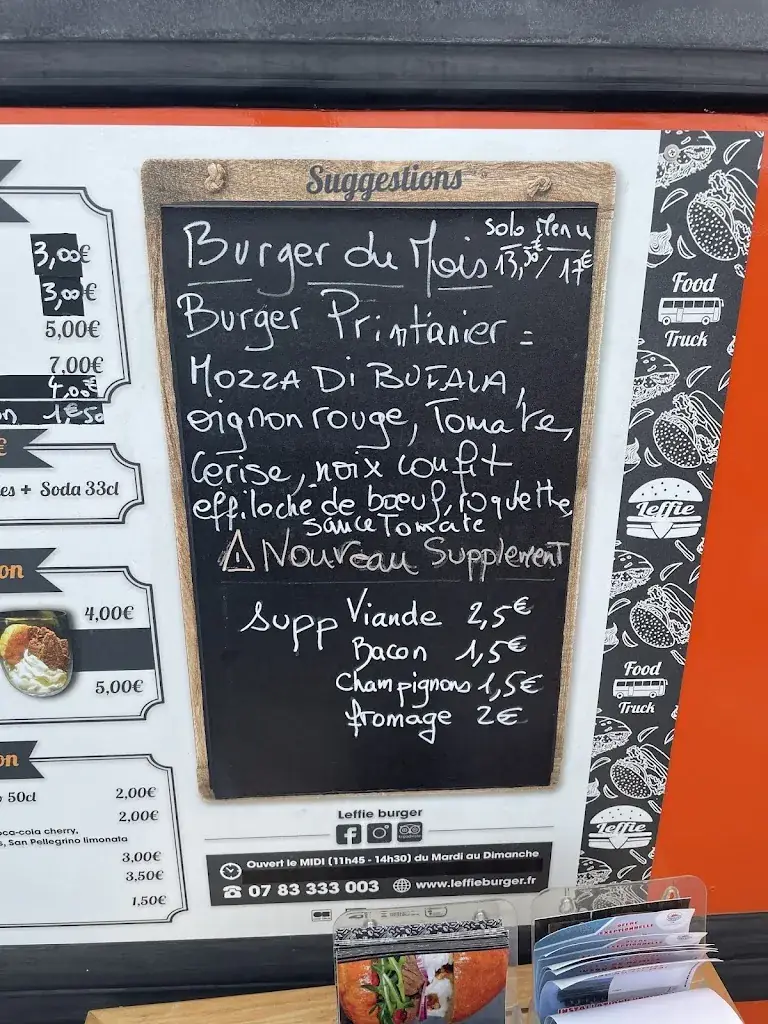 Suggestions
Burger du Mois
solo Menu
13,50€/17€
Burger Printanier =
MOZZA Di BUFALA,
oignon rouge, Tomate,
Cerise, noix confit
effiloché de bœuf, roquette,
sauce Tomate
⚠ Nouveau Supplement
Supp Viande 2,5€
Bacon 1,5€
Champignons 1,5€
fromage 2€
Leffie burger
Ouvert le MIDI (11h45 - 14h30) du Mardi au Dimanche
07 83 333 003 www.leffieburger.fr
3,00€
3,00€
5,00€
7,00€
4,00€
1€50
€
es + Soda 33cl
on
4,00€
5,00€
on
50cl 2,00€
2,00€
oca-cola cherry,
s, San Pellegrino limonata
3,00€
3,50€
1,50€
Food
Truck
Leffie
Food
Truck
Leffie